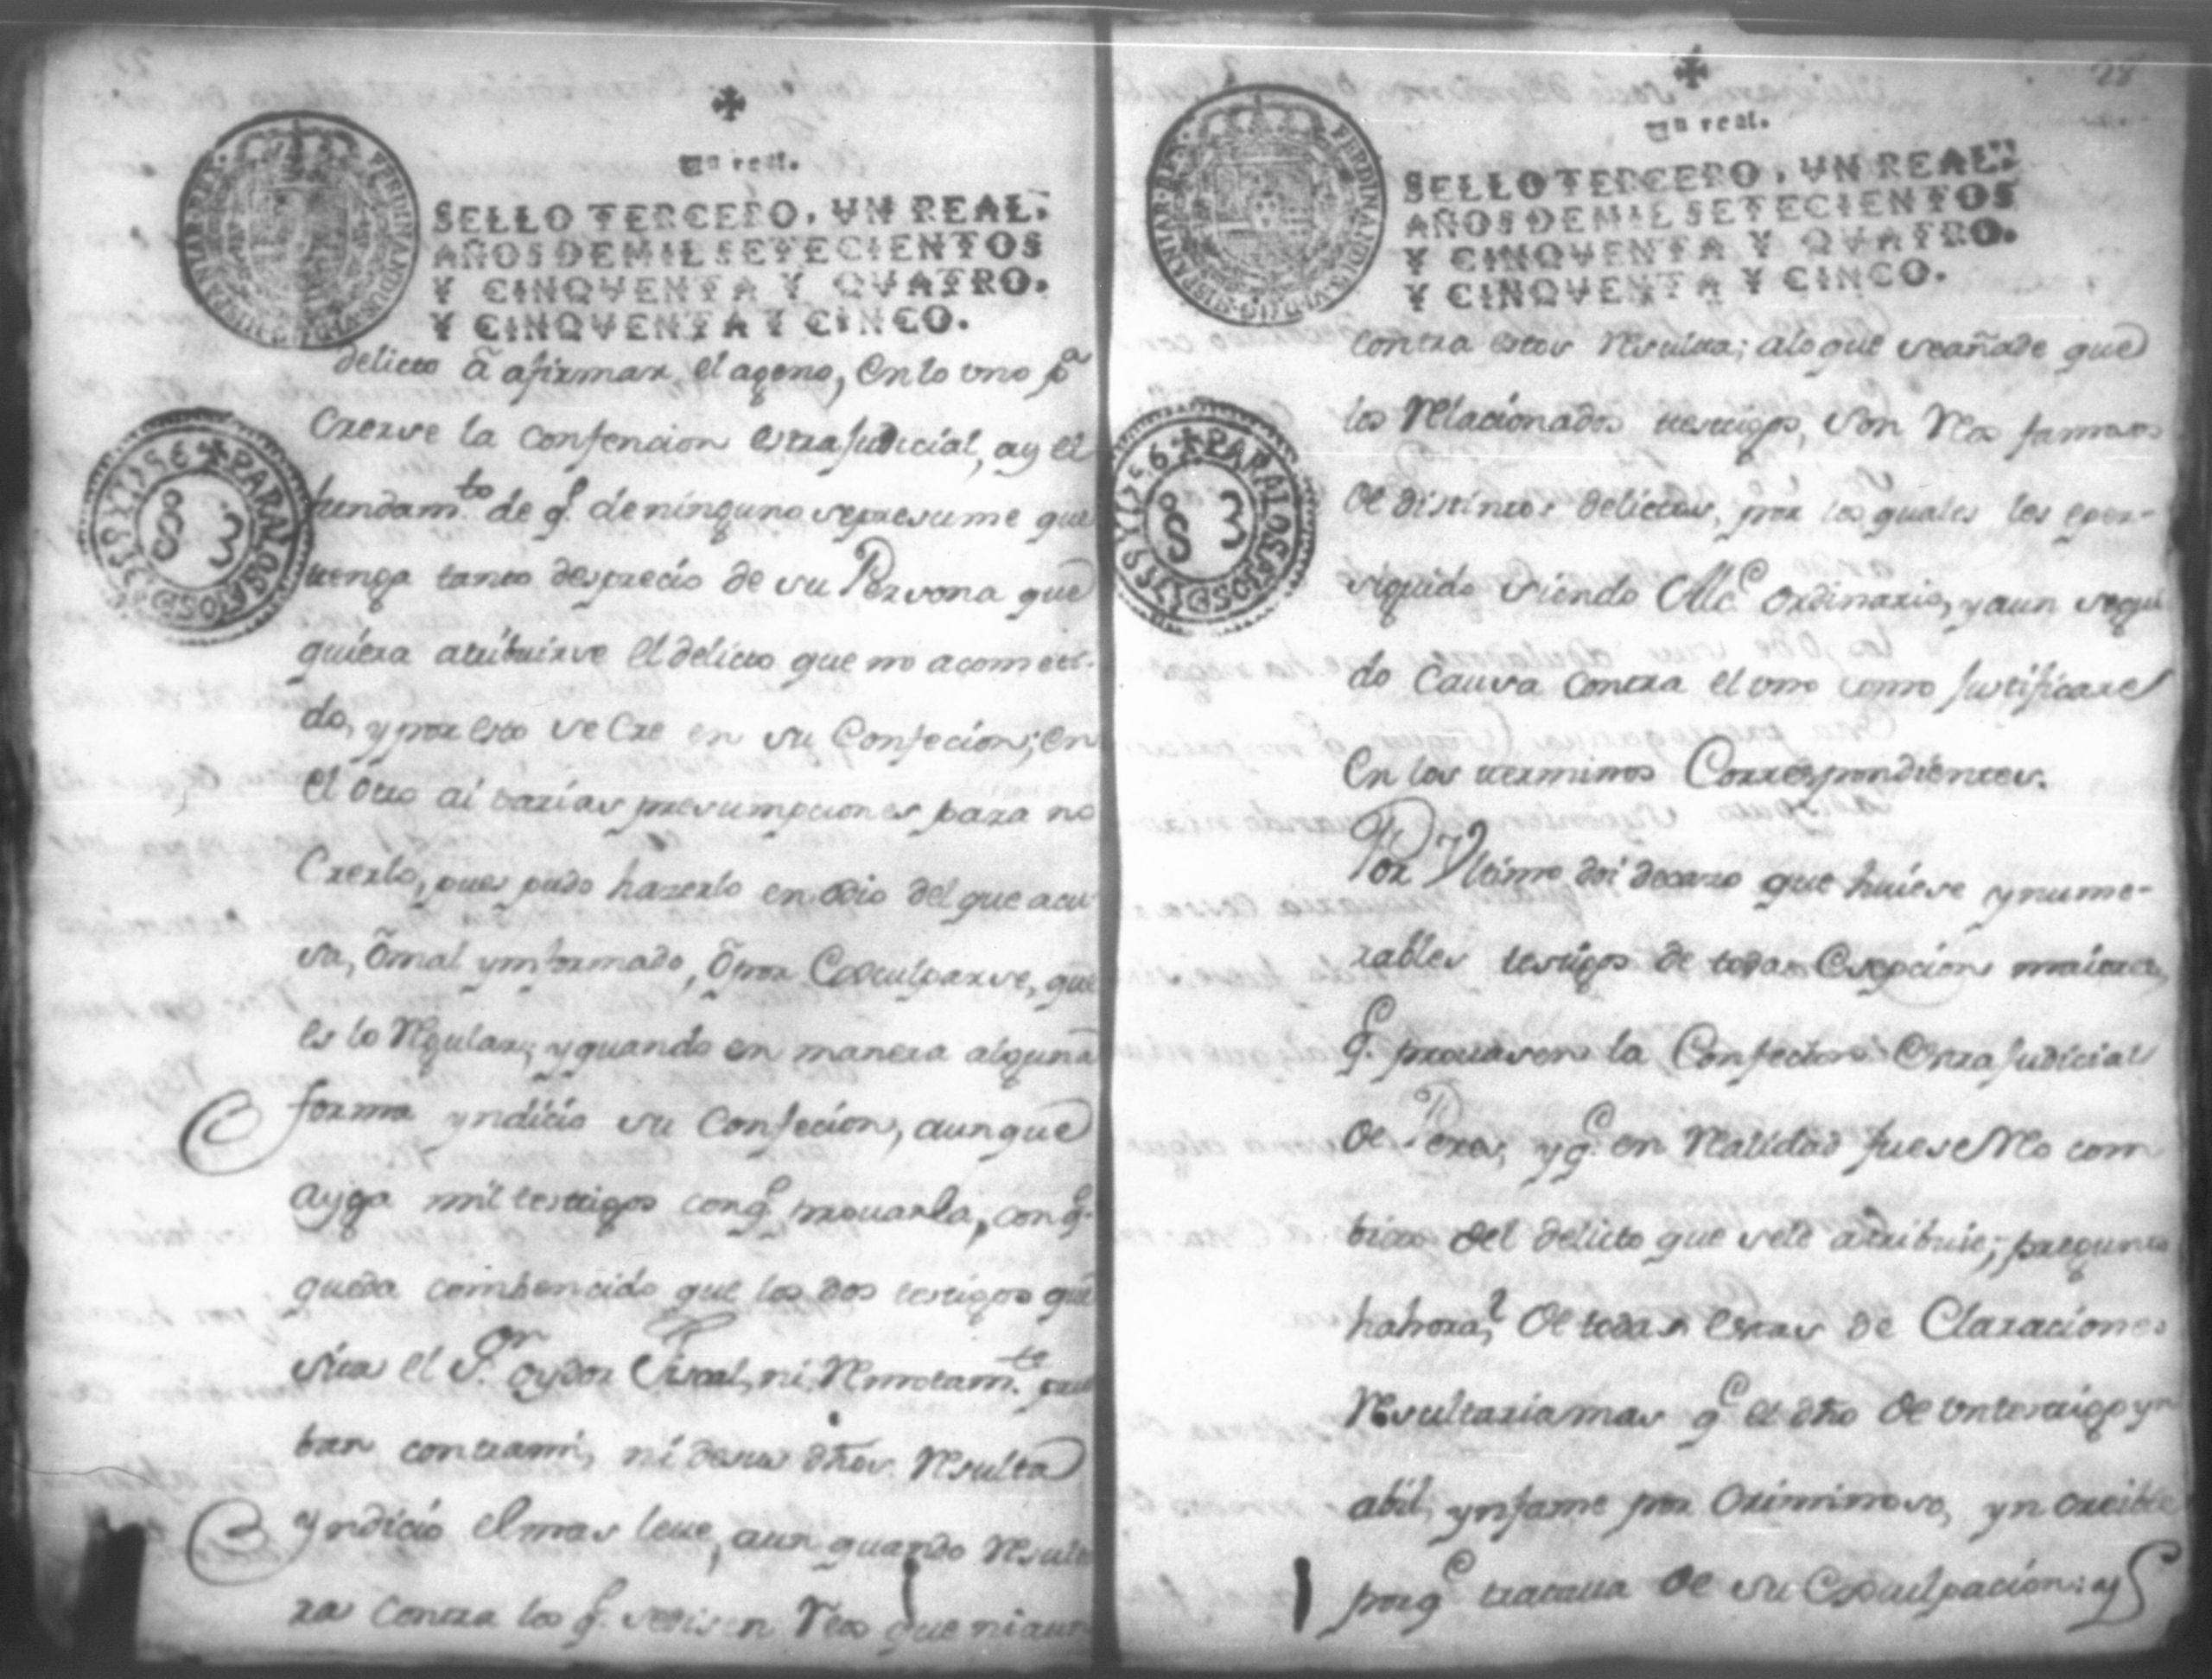 ✠
Un real.
SELLO TERCERO, VN REAL.
AÑOS DE MIL SETECIENTOS
Y CINQVENTA Y QVATRO.
Y CINQVENTA Y CINCO.
PARA LOS AÑOS D 1759 Y 1756
S 3
delicto â afirmar, el ageno, en lo vno pa
Creerse la Confencion estrajudicial, ay el
fundamto. de q. de ninguno sepresume que
tenga tanto desprecio de su Persona que
quiera atribuirse el delicto que no a cometi-
do, y por esto se Cre en su Confecion; en
el otro ai barias presumpciones para no
Creerlo, pues pudo hazerlo en odio del que acu-
sa, ô mal ynformado, ô por Exculparse, que
es lo Regular; y quando en manera alguna
forma yndicio su Confecion, aunque
ayga mil testigos con q. prouarla, con q.
queda combencido que los dos testigos que
sita el Sor. oydor Fiscal, ni Remotamte. prue
ban contrami, ni desus dhos. Resulta
yndicio el mas leue, aun quando Resulta
ra contra los q. sedisen Reos que ni aun
28
✠
Un real.
SELLO TERCERO, VN REAL.
AÑOS DE MIL SETECIENTOS
Y CINQVENTA Y QVATRO.
Y CINQVENTA Y CINCO.
FERDINANDUS VI D G HISPANIAR REX
PARA LOS AÑOS D 1759 Y 1756
S 3
contra estos Resulta; alo que seañade que
los Relacionados testigos, son Reos famosos
de distintos delictos, por los quales los eper-
siguido siendo Alce. ordinario, y aun segui
do Causa contra el vno como Justificare
en los terminos Correspondientes.
Por Vltimo doi decaso que huiese ynume-
rables testigos de todas Esepcion maiores
q. prouasen la Confecion Extrajudicial
de Perez, y q. en Realidad fuese Reo com
bicto del delicto que sele atribuie; pregunto
hahora? de todas estas de Claraciones
Resultariamas q el dho de vntestigo yn
abil, ynfame por Criminoso, yn creible
porq tratara de su Exculpacion: ay